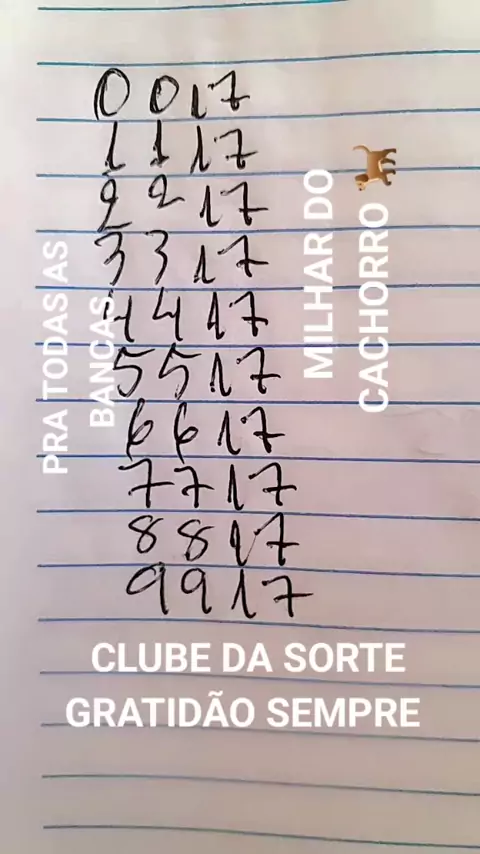 0017
1117
2217
3317
4417
5517
6617
7717
8817
9917
PRA TODAS AS
BANCAS
MILHAR DO
CACHORRO 🐕
CLUBE DA SORTE
GRATIDÃO SEMPRE